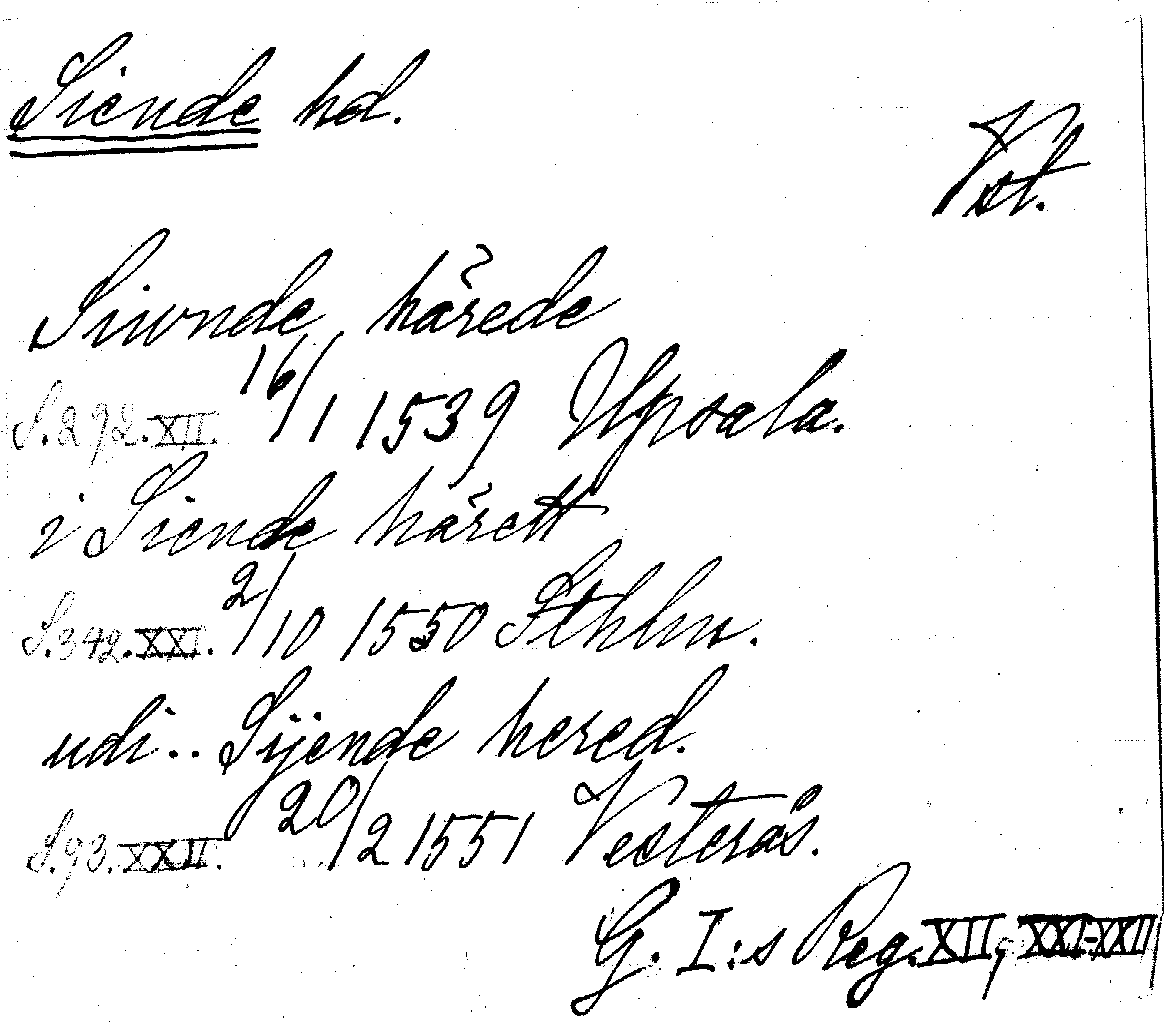 Siende hd.
Vst.
Siwnde härede
S. 292. XII. 16/1 1539 Upsala.
i Siende härett
S. 342. XXI. 2/10 1550 Sthlm.
udi.. Sijende hered.
S. 93. XXII. 20/2 1551 Vesterås.
G. I:s Reg. XII, XXI-XXII